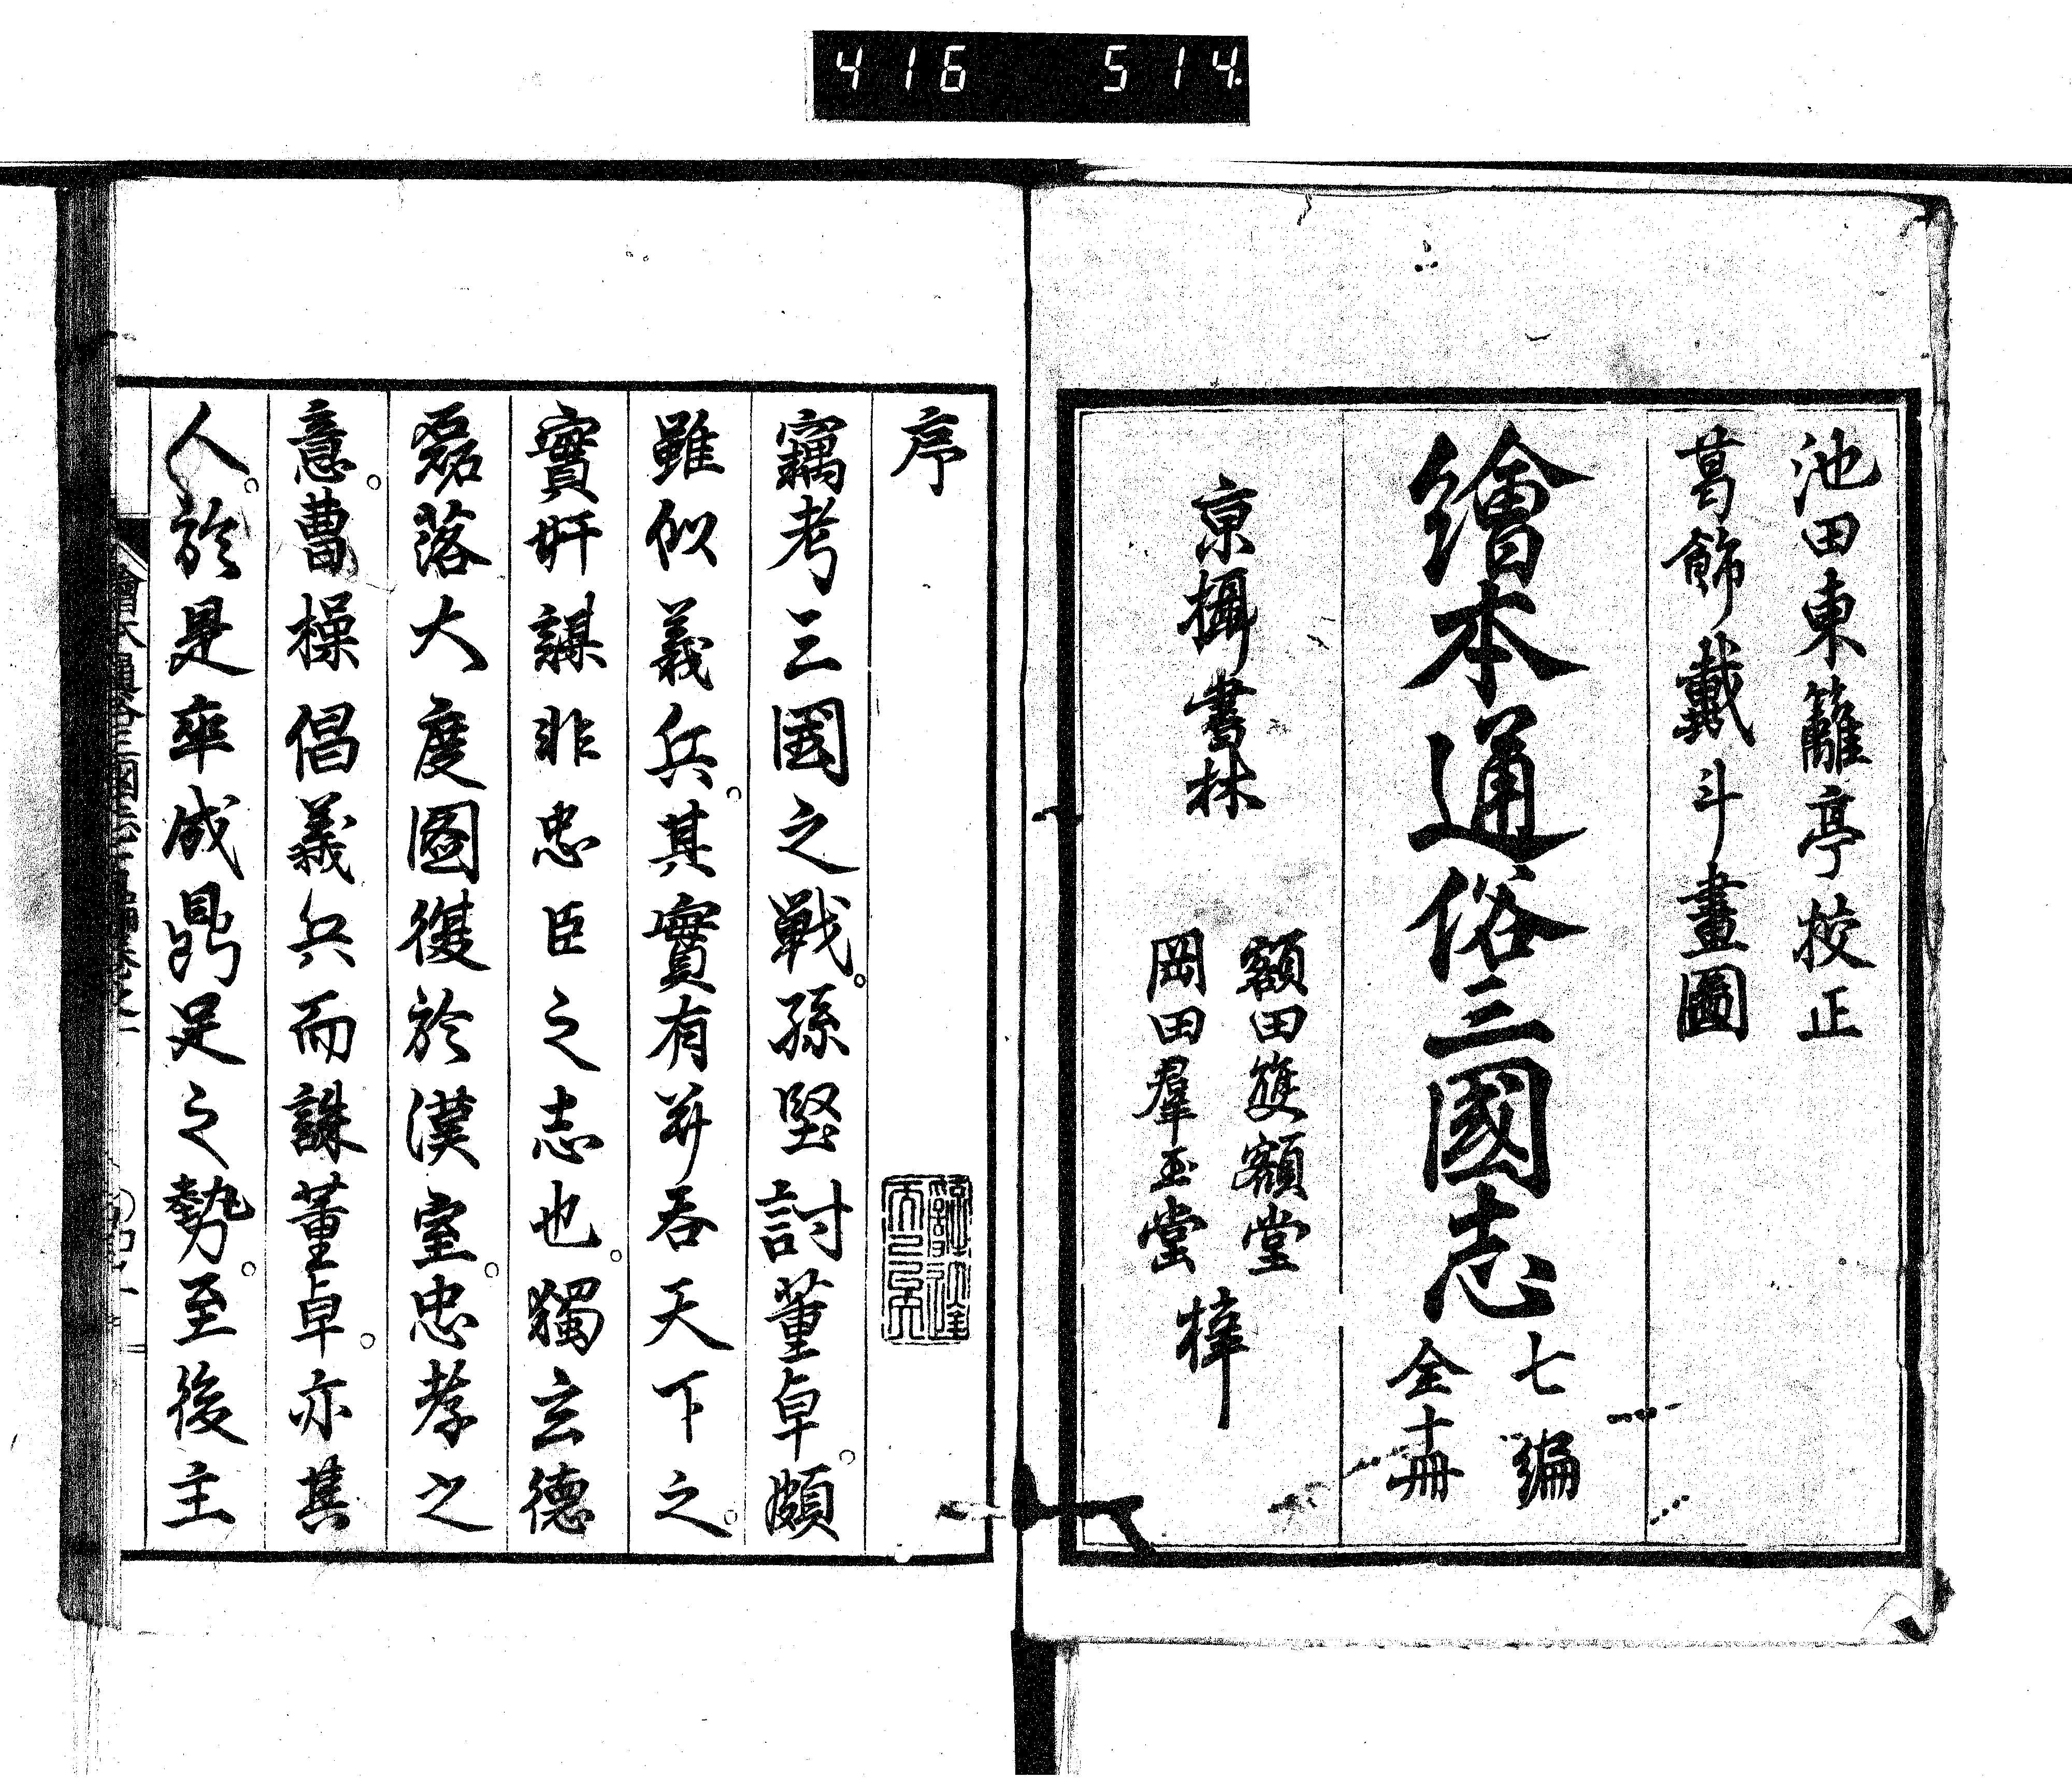 416 514.
池田東籬亭挍正
葛飾戴斗畫圖
繪本通俗三國志
七編
全十冊
京攝書林
額田䨇額堂
岡田羣玉堂
梓
序
竊考三國之戰。孫堅討董卓。頗
雖似義兵。其實有并吞天下之。
實奸謀非忠臣之志也。獨玄德
磊落大度圖復於漢室。忠孝之
意。曹操倡義兵而誅董卓。亦其
人。於是卒成鼎足之勢。至後主